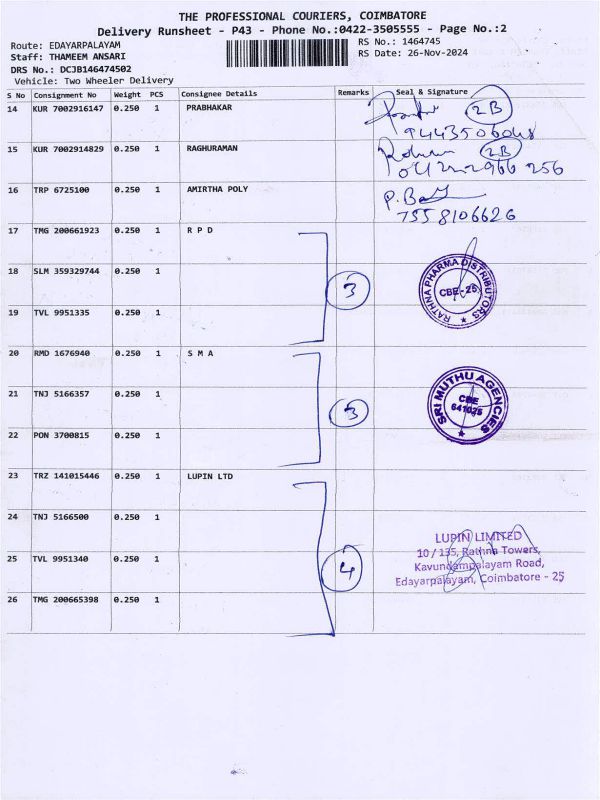 THE PROFESSIONAL COURIERS, COIMBATORE
Delivery Runsheet - P43 - Phone No.:0422-3505555 - Page No.:2
Route: EDAYARPALAYAM
RS No.: 1464745
Staff: THAMEEM ANSARI
RS Date: 26-Nov-2024
DRS No.: DCJB146474502
Vehicle: Two Wheeler Delivery
S No Consignment No Weight PCS Consignee Details Remarks Seal & Signature
14 KUR 7002916147 0.250 1 PRABHAKAR 2B
15 KUR 7002914829 0.250 1 RAGHURAMAN 2B
16 TRP 6725100 0.250 1 AMIRTHA POLY
7558106626
17 TMG 200661923 0.250 1 R P D
18 SLM 359329744 0.250 1 3
RATHNA PHARMA DISTRIBUTORS
CBE-25
19 TVL 9951335 0.250 1
20 RMD 1676940 0.250 1 S M A
21 TNJ 5166357 0.250 1 3
SRI MUTHU AGENCIES
CBE
641025
22 PON 3700815 0.250 1
23 TRZ 141015446 0.250 1 LUPIN LTD
24 TNJ 5166500 0.250 1
LUPIN LIMITED
10 / 135, Rathna Towers,
25 TVL 9951340 0.250 1 4
Kavundampalayam Road,
Edayarpalayam, Coimbatore - 25
26 TMG 200665398 0.250 1